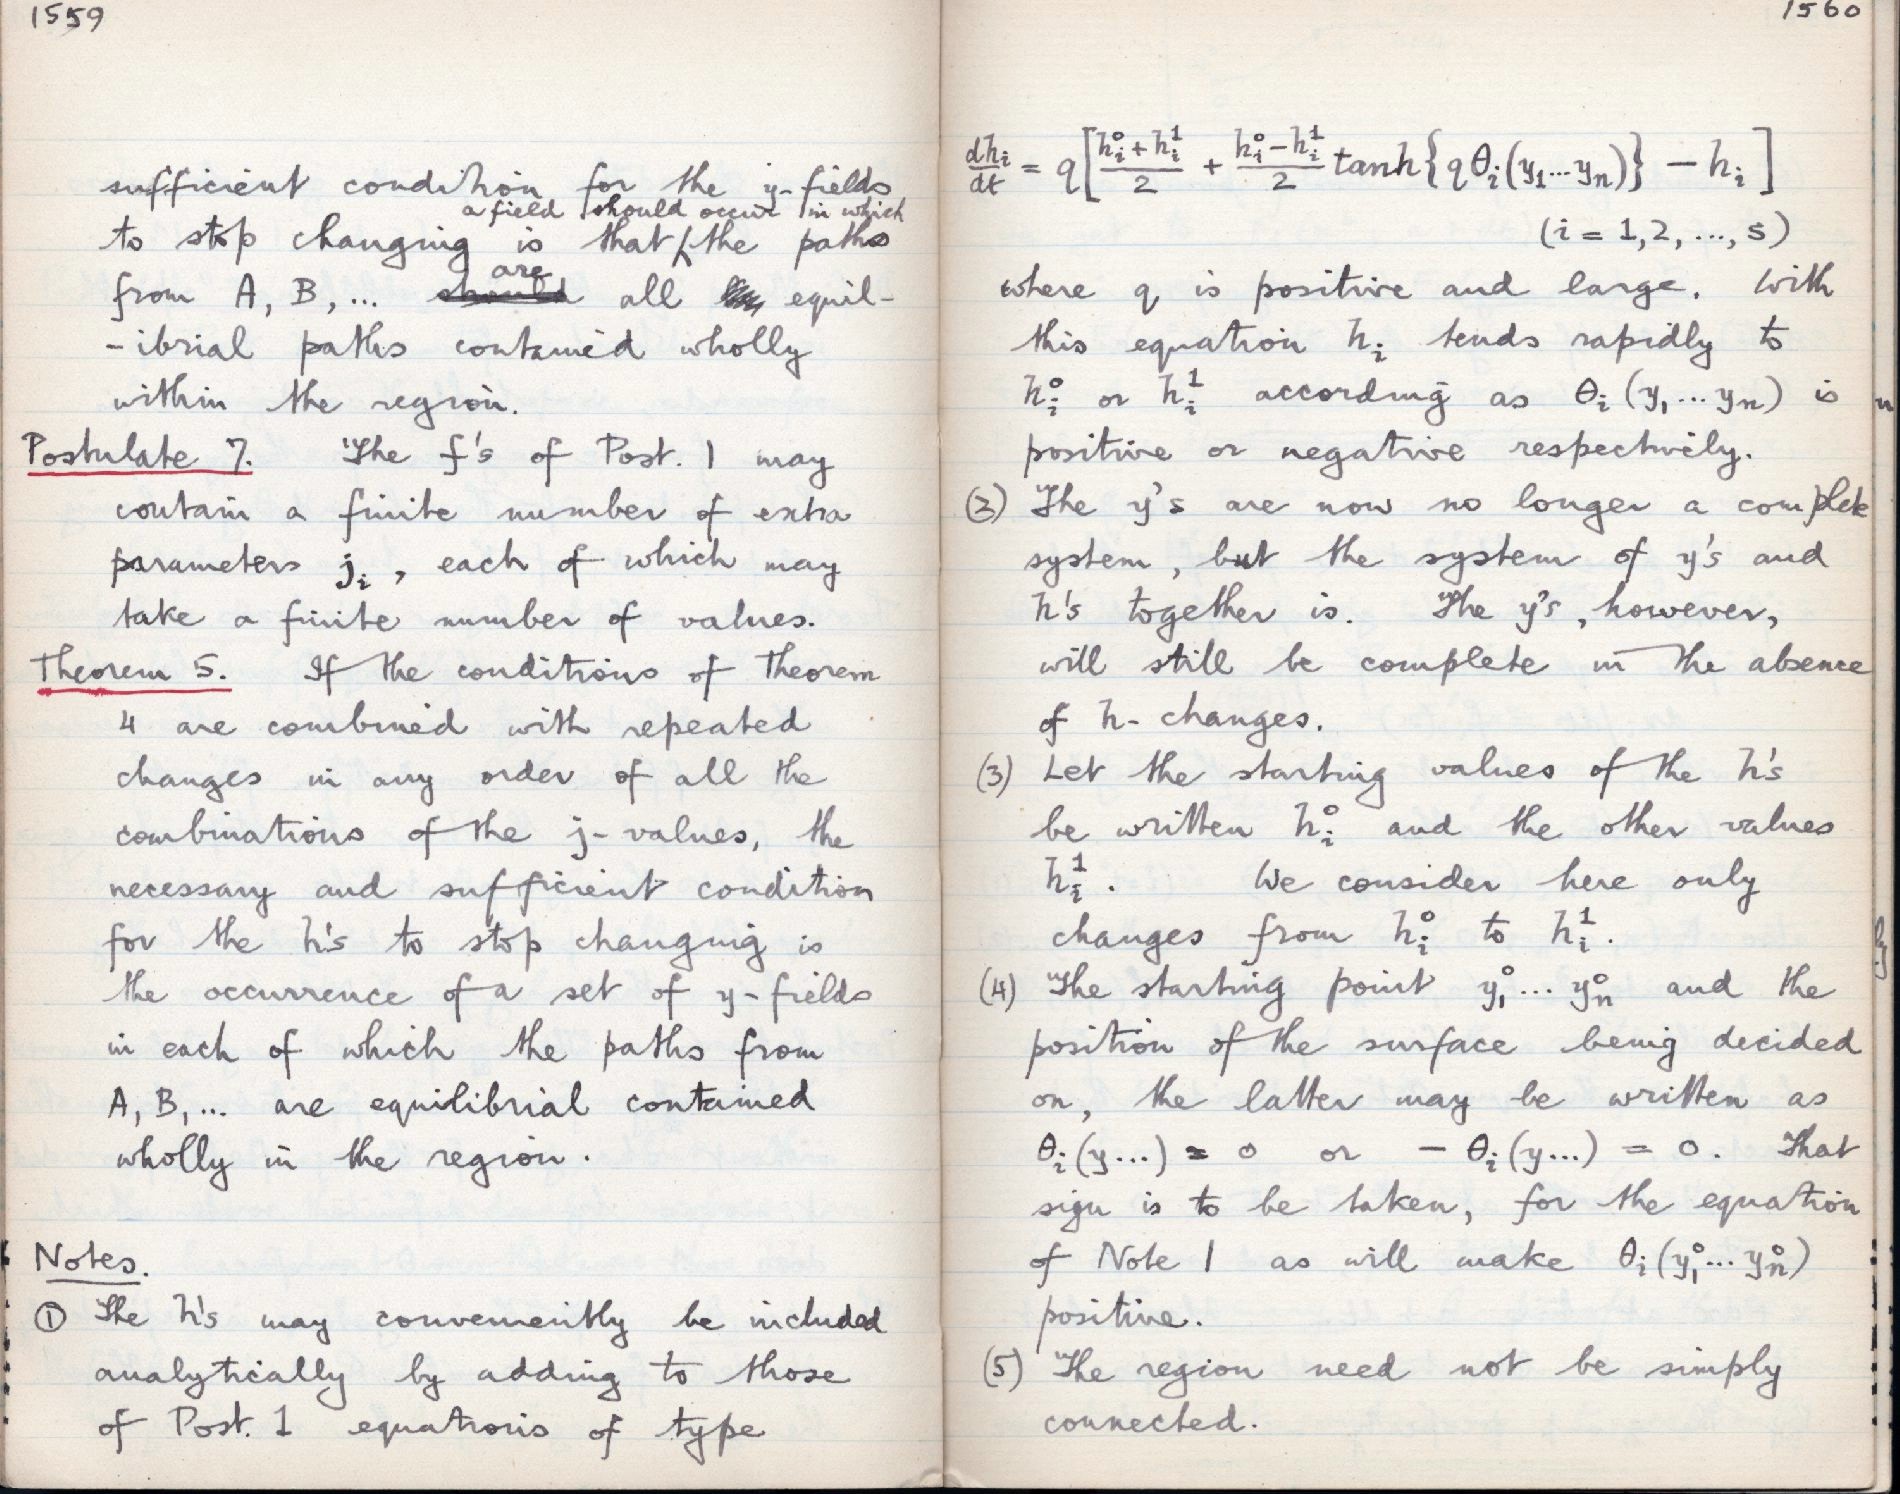 1559
sufficient condition for the y-fields
a field should occur in which
to stop changing is that the paths
are
from A, B, ... should all equil-
-ibrial paths contained wholly
within the region.
Postulate 7. The f's of Post. 1 may
contain a finite number of extra
parameters jᵢ, each of which may
take a finite number of values.
Theorem 5. If the conditions of Theorem
4 are combined with repeated
changes in any order of all the
combinations of the j-values, the
necessary and sufficient condition
for the h's to stop changing is
the occurrence of a set of y-fields
in each of which the paths from
A, B, ... are equilibrial contained
wholly in the region.
Notes.
① The h's may conveniently be included
analytically by adding to those
of Post. 1 equations of type
1560
dhᵢ/dt = q[(hᵢ⁰ + hᵢ¹)/2 + (hᵢ⁰ − hᵢ¹)/2 tanh{qθᵢ(y₁...yₙ)} − hᵢ]
(i = 1,2, ..., s)
where q is positive and large. With
this equation hᵢ tends rapidly to
hᵢ⁰ or hᵢ¹ according as θᵢ(y₁...yₙ) is
positive or negative respectively.
(2) The y's are now no longer a complete
system, but the system of y's and
h's together is. The y's, however,
will still be complete in the absence
of h-changes.
(3) Let the starting values of the h's
be written hᵢ⁰ and the other values
hᵢ¹. We consider here only
changes from hᵢ⁰ to hᵢ¹.
(4) The starting point y₁⁰...yₙ⁰ and the
position of the surface being decided
on, the latter may be written as
θᵢ(y...) = 0 or − θᵢ(y...) = 0. That
sign is to be taken, for the equation
of Note 1 as will make θᵢ(y₁⁰...yₙ⁰)
positive.
(5) The region need not be simply
connected.